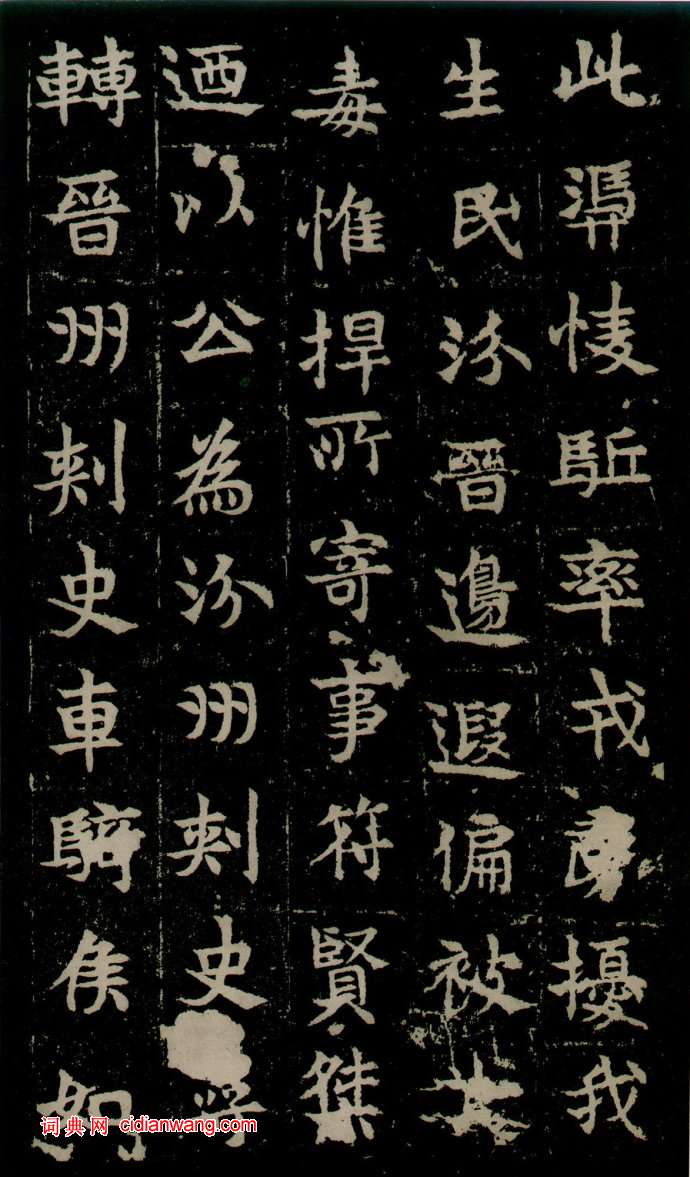 此㥄駈率戎擾我
生民汾晉邊遐偏被其
毒惟捍所寄事符賢傑
迺以公為汾州刺史
轉晉州刺史車騎侯如
词典网 cidianwang.com